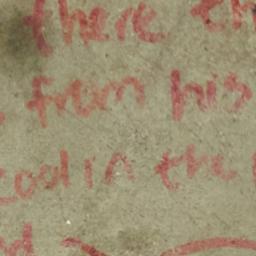 there
from his
cool in the